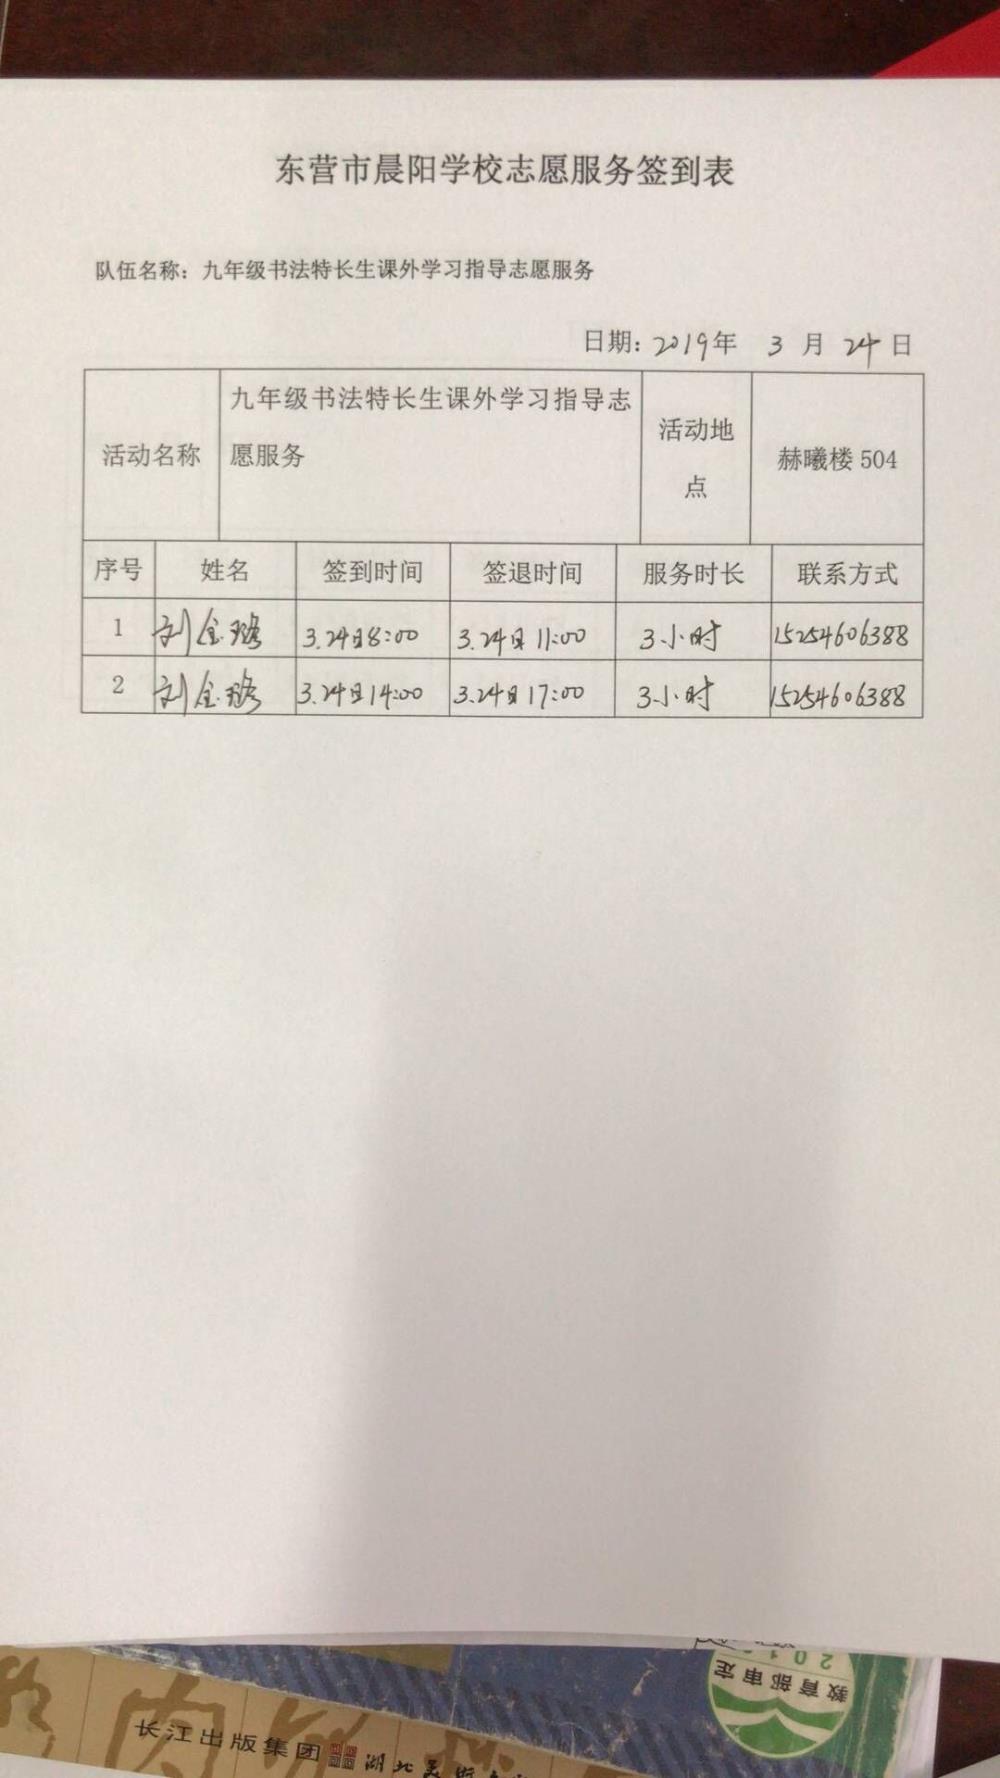 东营市晨阳学校志愿服务签到表
队伍名称：九年级书法特长生课外学习指导志愿服务
日期：2019年 3 月 24 日
活动名称 九年级书法特长生课外学习指导志愿服务 活动地点 赫曦楼 504
序号 姓名 签到时间 签退时间 服务时长 联系方式
1 刘金璐 3.24日8:00 3.24日11:00 3小时 15254606388
2 刘金璐 3.24日14:00 3.24日17:00 3小时 15254606388
教育部审定
长江出版集团 湖北美术